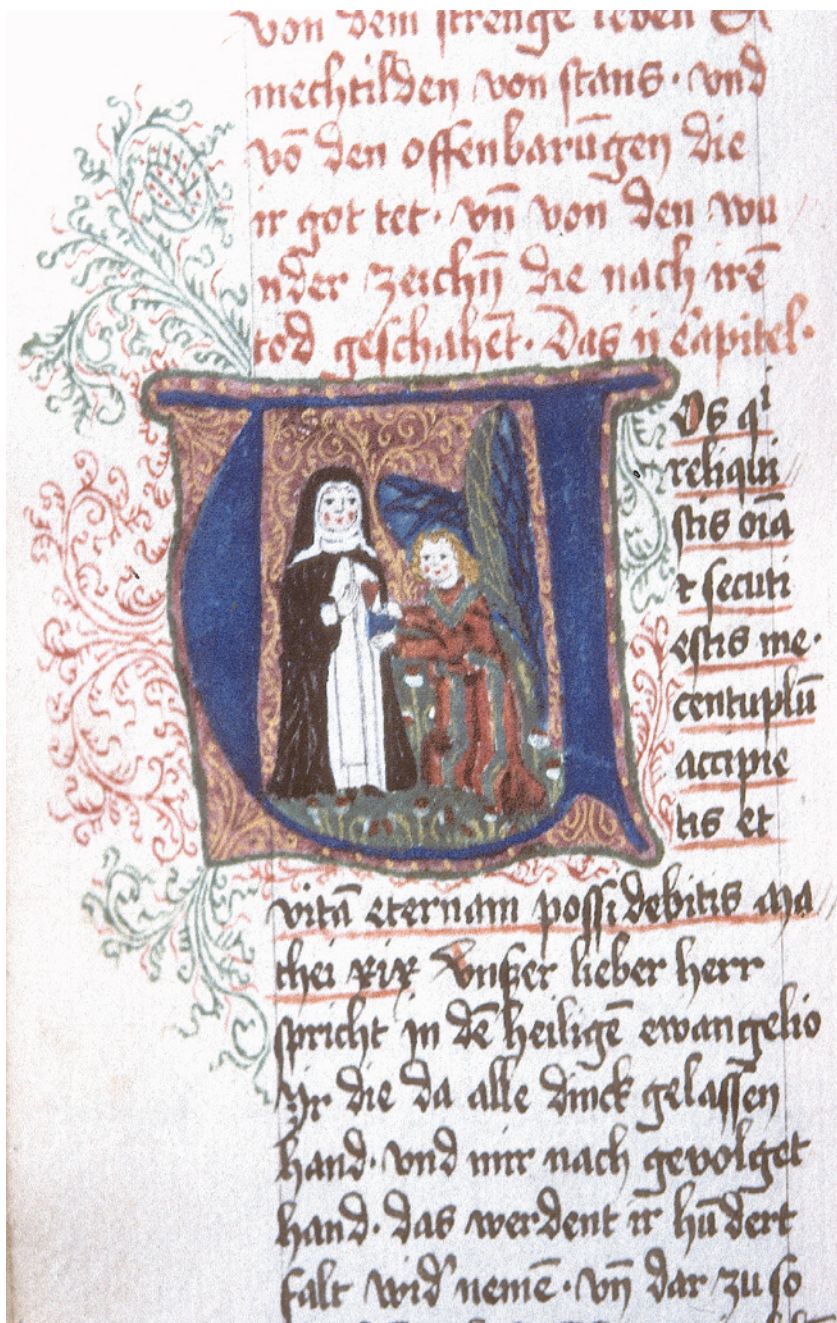 von dem strenge leben
mechtilden von stans · vnd
vō den offenbarūgen die
ir got tet · vn̄ von den wu
nder zeichn̄ die nach irē
tod geschahēt · Das ij Capitel ·
Vos qi
reliqui
stis oīa
et secuti
estis me ·
centuplū
accipie
tis et
vitā eternam possidebitis Ma
thei xix Vnßer lieber herr
spricht in dē heiligē ewangelio
Yr die da alle dinck gelassen
hand · vnd mir nach gevolget
hand · das werdent ir hūdert
falt wid' nemē · vn̄ dar zu so